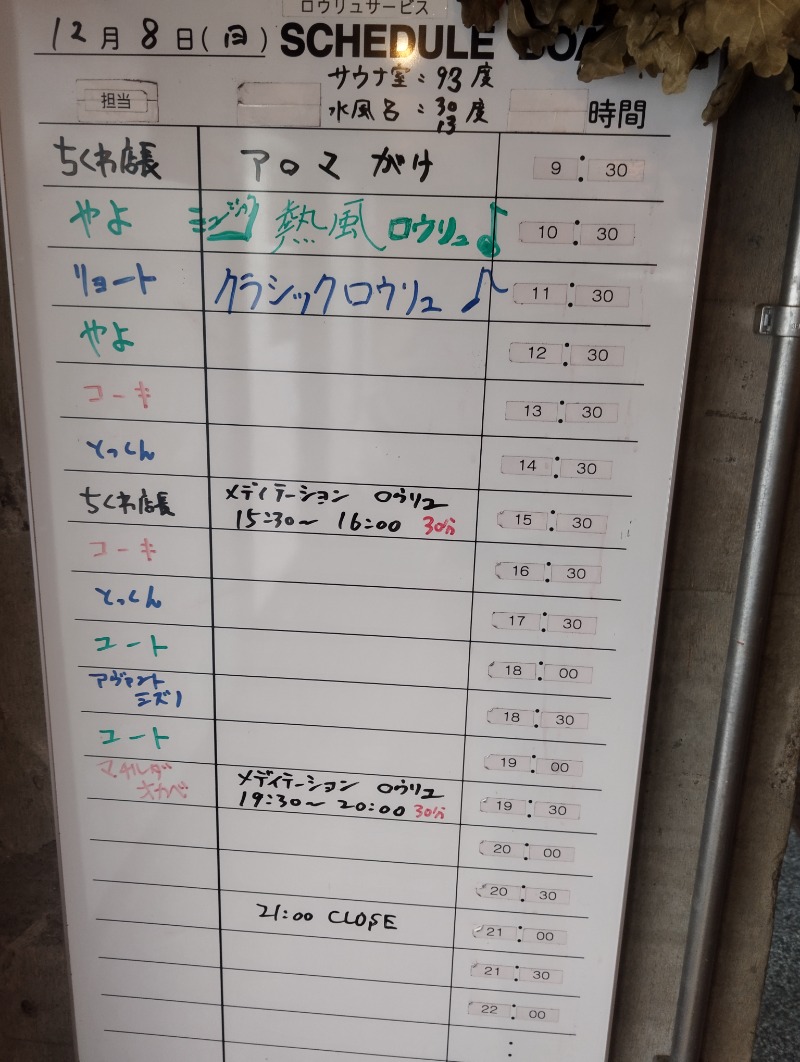 ロウリュサービス
12月8日(日) SCHEDULE BOA
サウナ室:93度
水風呂:30度
13
担当 時間
ちくわ店長 アロマがけ 9:30
やよ ミュージック 熱風ロウリュ♪ 10:30
リョート クラシックロウリュ♪ 11:30
やよ 12:30
コーキ 13:30
とっくん 14:30
ちくわ店長 メディテーション ロウリュ 15:30
15:30〜16:00 30分
コーキ 16:30
とっくん 17:30
ユート 18:00
アヴァント 18:30
ミズノ
ユート 19:00
マチルダ メディテーション ロウリュ 19:30
オカベ 19:30〜20:00 30分
20:00
20:30
21:00 CLOSE 21:00
21:30
22:00
: